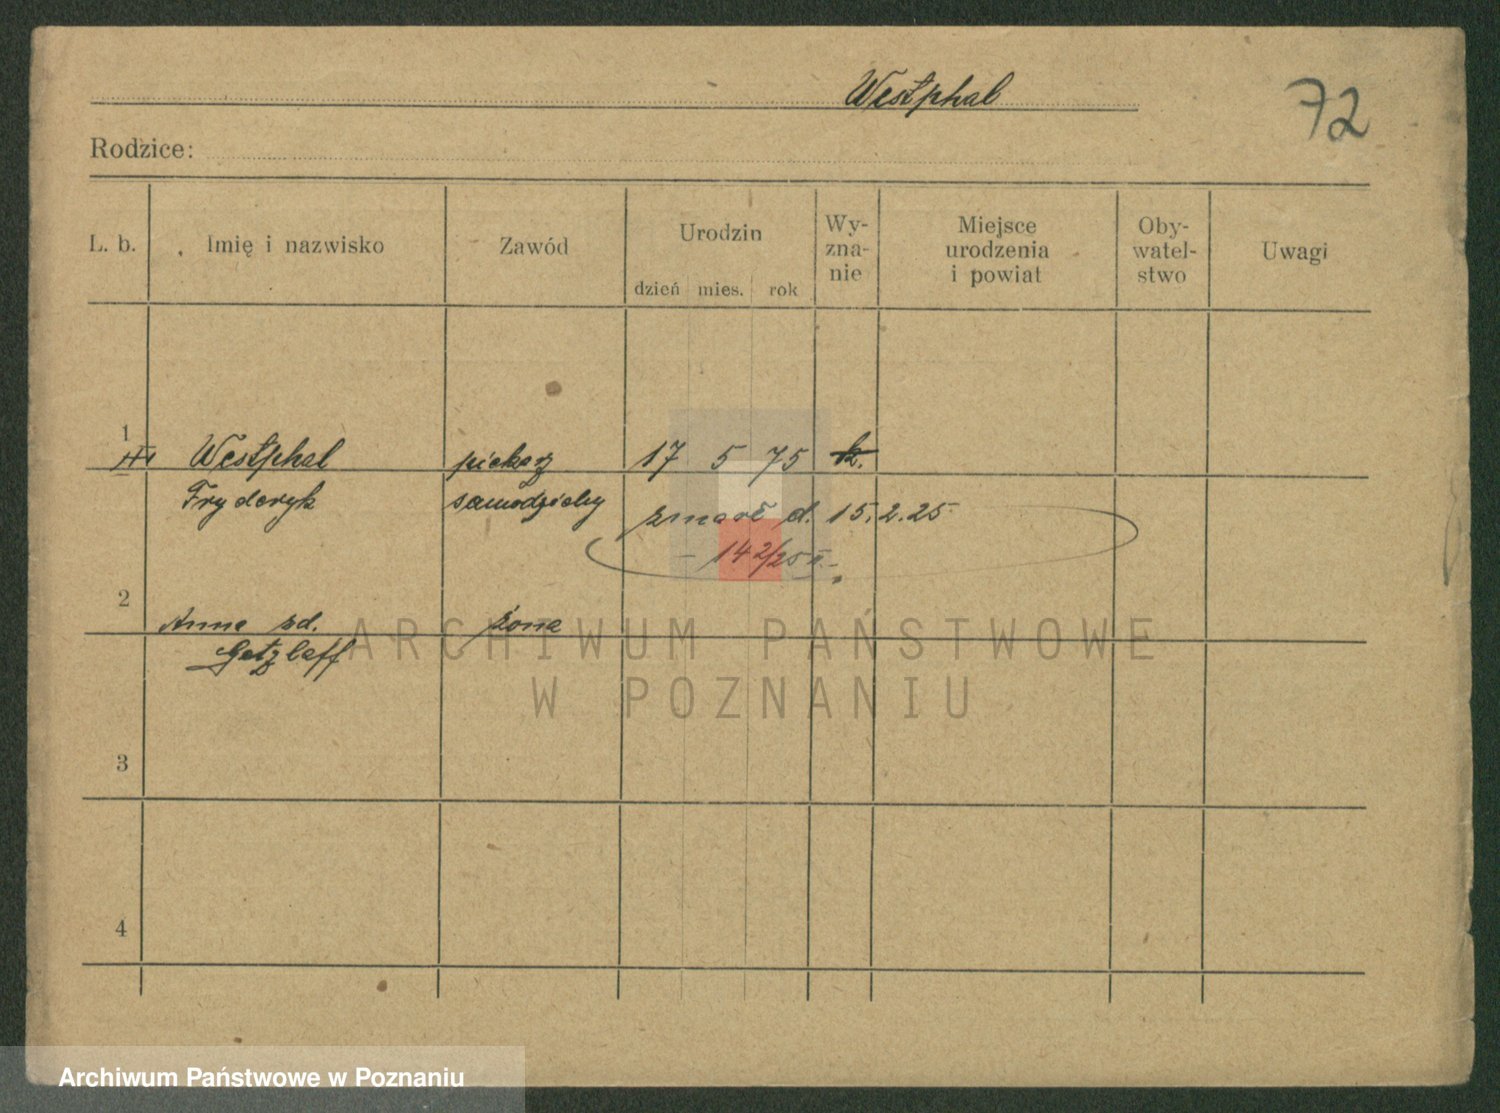 Westphal
72
Rodzice:
L. b. Imię i nazwisko Zawód Urodzin Wy- Miejsce Oby- Uwagi
zna- urodzenia watel-
dzień mies. rok nie i powiat stwo
1
Westphal piekarz 17 5 75 k.
Fryderyk samodzielny
zmarł d. 15.2.25
– 142/25 II –
2
Anna zd. żona
Getzlaff
3
4
ARCHIWUM PAŃSTWOWE
W POZNANIU
Archiwum Państwowe w Poznaniu